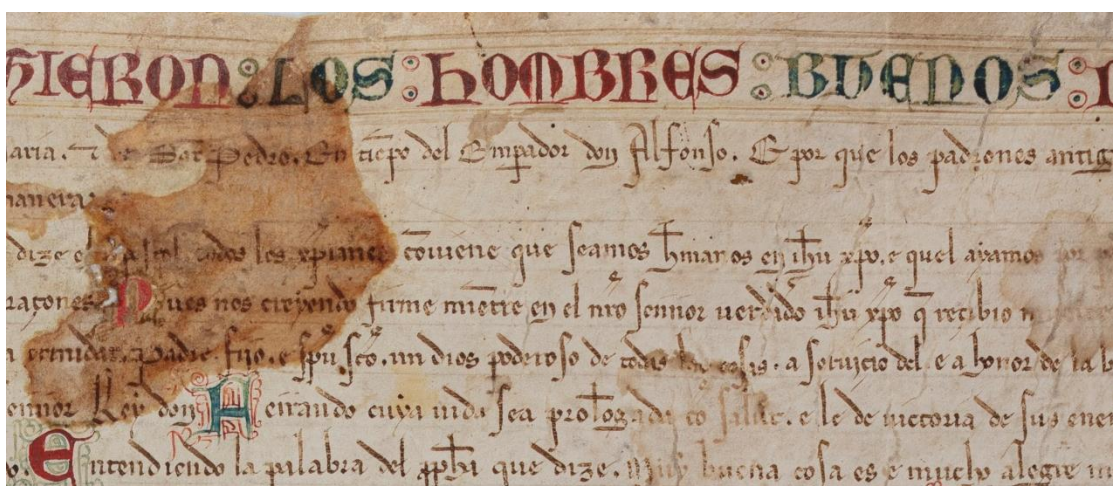 IERON : LOS : hOMBRES : BUENOS :
maria. Pedro. En tiepo del Emperador don Alfonso. E por que los padrones antig
manera.
dize el todos los xpianos coviene que seamos hmanos en ihu xpo. e quel ayamos
raçones. Pues nos creyendo firme mientre en el nro sennor uerdado ihu xpo q recibio
trinidat. Padre. fijo. e spu sco. un dios poderoso de todas las cosas. a seruicio del. e a honor de la b
sennor Rey don Ferrando cuya uida sea prologada co salut. e le de uictoria de sus ene
Entendiendo la palabra del ppha que dize. Muy buena cosa es e mucho alegre